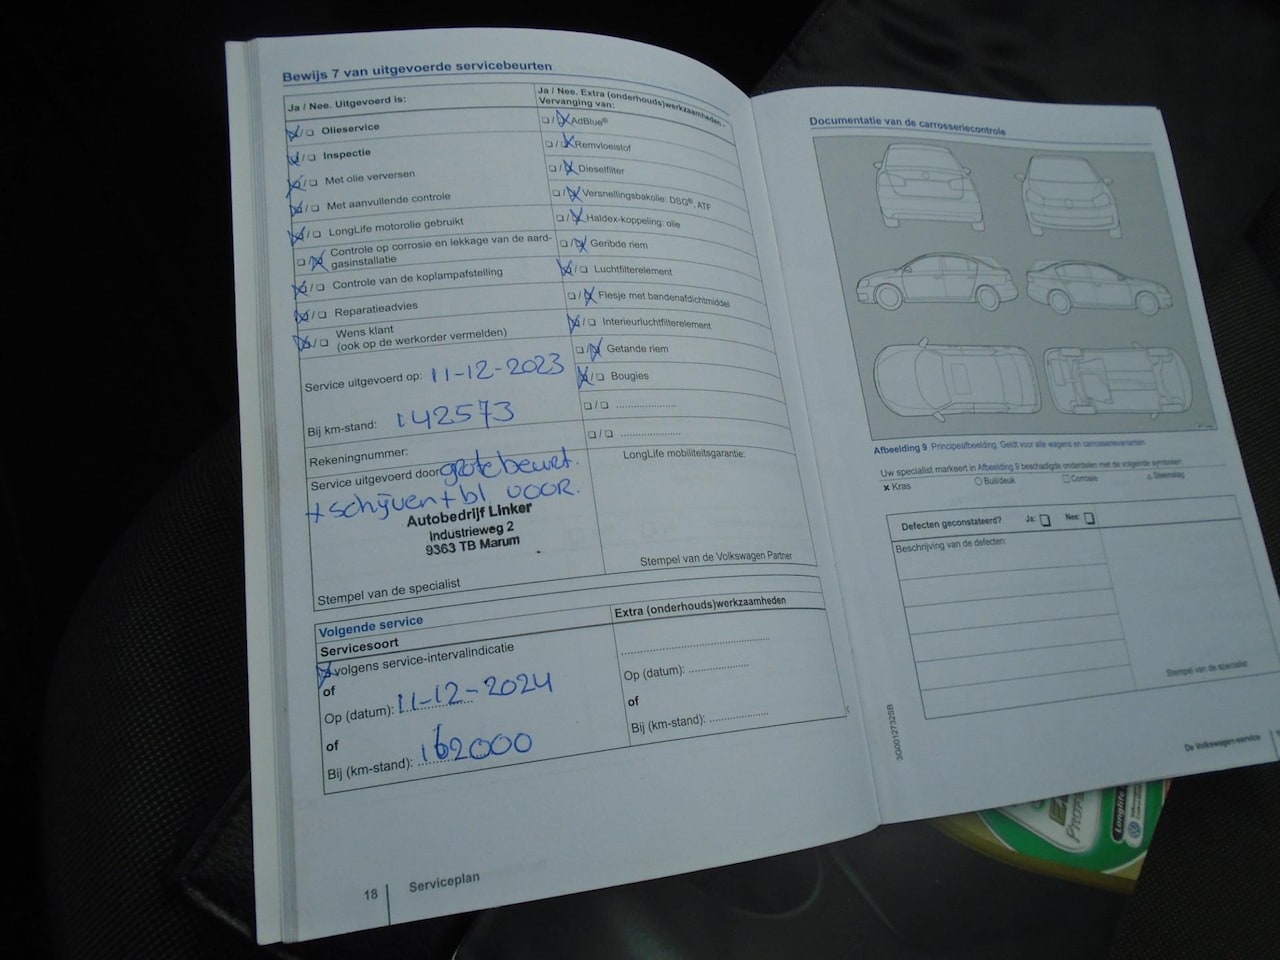 Bewijs 7 van uitgevoerde servicebeurten
Ja / Nee. Uitgevoerd is:
Olieservice
Inspectie
Met olie verversen
Met aanvullende controle
LongLife motorolie gebruikt
Controle op corrosie en lekkage van de aard-
gasinstallatie
Controle van de koplampafstelling
Reparatieadvies
Wens klant
(ook op de werkorder vermelden)
Service uitgevoerd op: 11-12-2023
Bij km-stand: 142573
Rekeningnummer:
Service uitgevoerd door grote beurt.
+ schijven + bl VOOR.
Autobedrijf Linker
Industrieweg 2
9363 TB Marum
Stempel van de specialist
Ja / Nee. Extra (onderhouds)werkzaamheden -
Vervanging van:
AdBlue®
Remvloeistof
Dieselfilter
Versnellingsbakolie: DSG®, ATF
Haldex-koppeling: olie
Geribde riem
Luchtfilterelement
Flesje met bandenafdichtmiddel
Interieurluchtfilterelement
Getande riem
Bougies
LongLife mobiliteitsgarantie:
Stempel van de Volkswagen Partner
Volgende service
Servicesoort
volgens service-intervalindicatie
of
Op (datum): 11-12-2024
of
Bij (km-stand): 162000
Extra (onderhouds)werkzaamheden
Op (datum):
of
Bij (km-stand):
18 Serviceplan
Documentatie van de carrosseriecontrole
Afbeelding 9 Principeafbeelding. Geldt voor alle wagens en carrosserievarianten
Uw specialist markeert in Afbeelding 9 beschadigde onderdelen met de volgende symbolen:
× Kras Buil/deuk Corrosie Steenslag
Defecten geconstateerd? Ja: Nee:
Beschrijving van de defecten:
Stempel van de specialist
3G0012732SB
De Volkswagen-service
Longlife